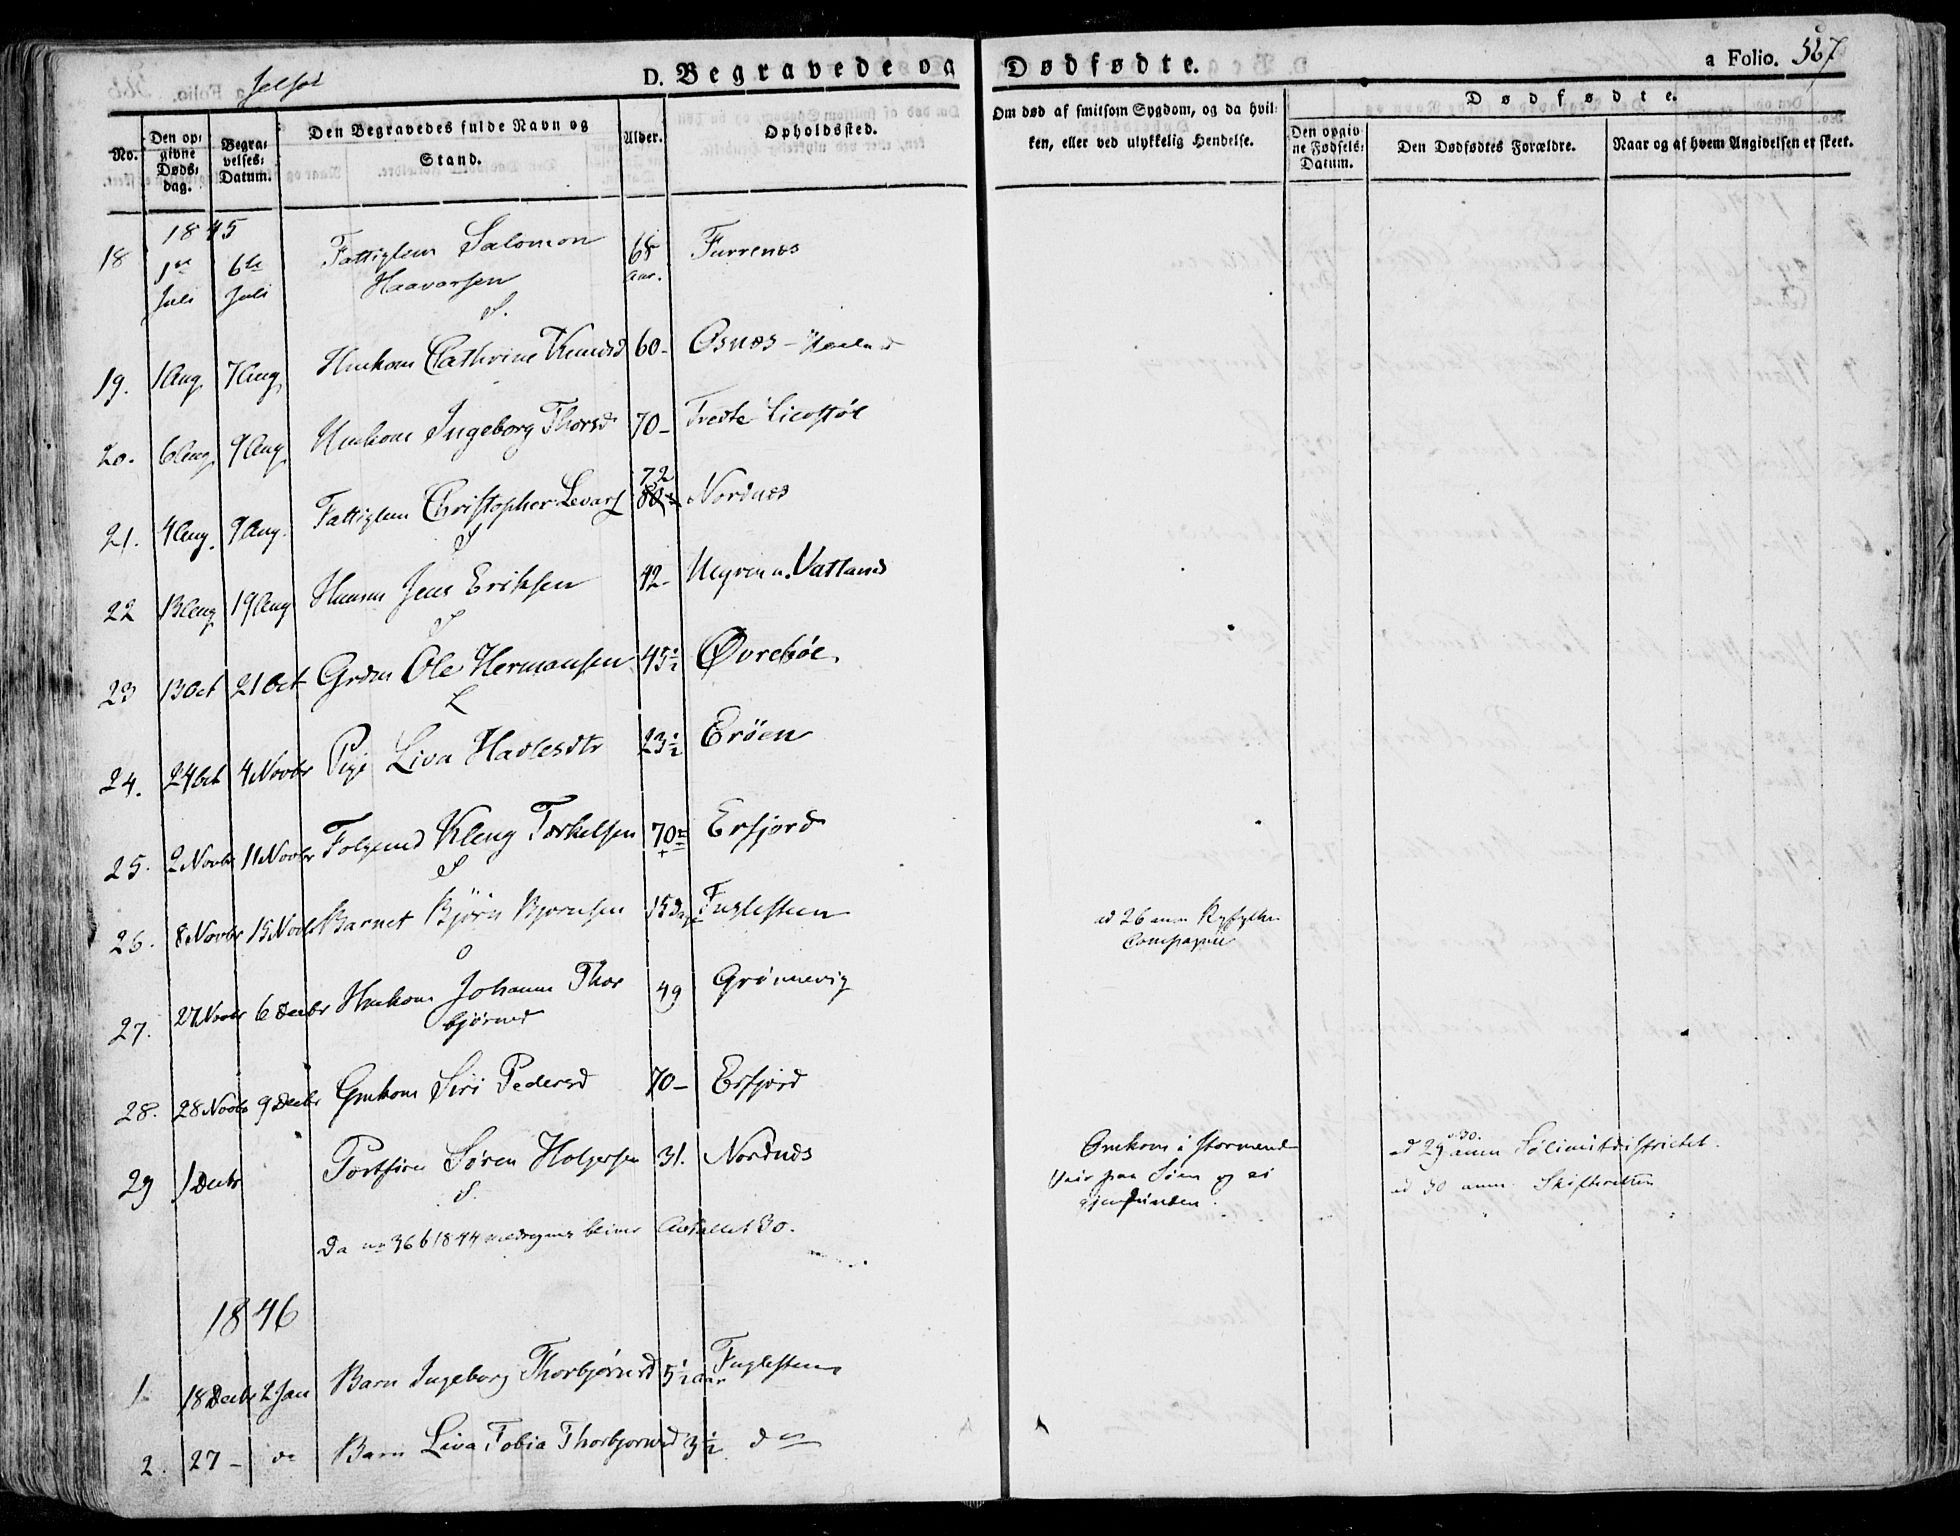 Jelsøe D. Begravede og Dødfødte. a Folio. 567
No. Den opgivne Dødsdag. Begravelses-Datum. Den Begravedes fulde Navn og Stand. Alder. Opholdssted. Om død af smitsom Sygdom, og da hvilken, eller ved ulykkelig Hendelse. Dødfødte.
Den opgivne Fødsels-Datum. Den Dødfødtes Forældre. Naar og af hvem Angivelsen er skeet.
1845
18 1ste Juli 6te Juli Fattiglem Salomon Haavarsen 68 Aar. Furrenes
S.
19. 1 Aug. 7 Aug. Huskone Cathrine Knudsd 60- Osnæs-
20. 6 Aug. 9 Aug. Huskone Ingeborg Thorsd 70- Tveite
21. 4 Aug. 9 Aug. Fattiglem Christopher Levars 72 Nordnes
S
22 13 Aug 19 Aug Husm Jens Eriksen 42- Vatland
S
23 13 Oct 21 Oct Grdm Ole Hermansen 45½ Øvrebøe.
L
24. 24 Oct 4 Novbr Pige Liva Hadlesdtr 23½ Erøen
25. 2 Novbr 11 Novbr Folgemd Kleng Torkelsen 70 Erfjord
S
26. 8 Novbr 15 Novbr Barnet Bjørn Bjørnsen 15 Dage Fuglesteen ad 26 anm Ryfylke
Compagnie
27. 27 Novbr 6 Decbr Huskone Johanne Thorbjørnsd 49 Grønnevig
28. 28 Novbr 9 Decbr Gmkone Siri Pedersd 70- Erfjord
29 1 Decbr Søren Holgersen 31. Nordnæs Omkom i stormende
Veir paa Søen og ei
gjenfunden.
ad 29 o 30. anm Sølimitdistrictet.
ad 30 anm. Skifteretten
S.
Da no 36 b 1844 medregnes bliver Antallet 30.
1846
1. 18 Decbr 2 Jan Barn Ingeborg Thorbjørnsd 5½ aar Fuglesteen
2. 27 - do Barn Liva Tobia Thorbjørnsd 3½ do